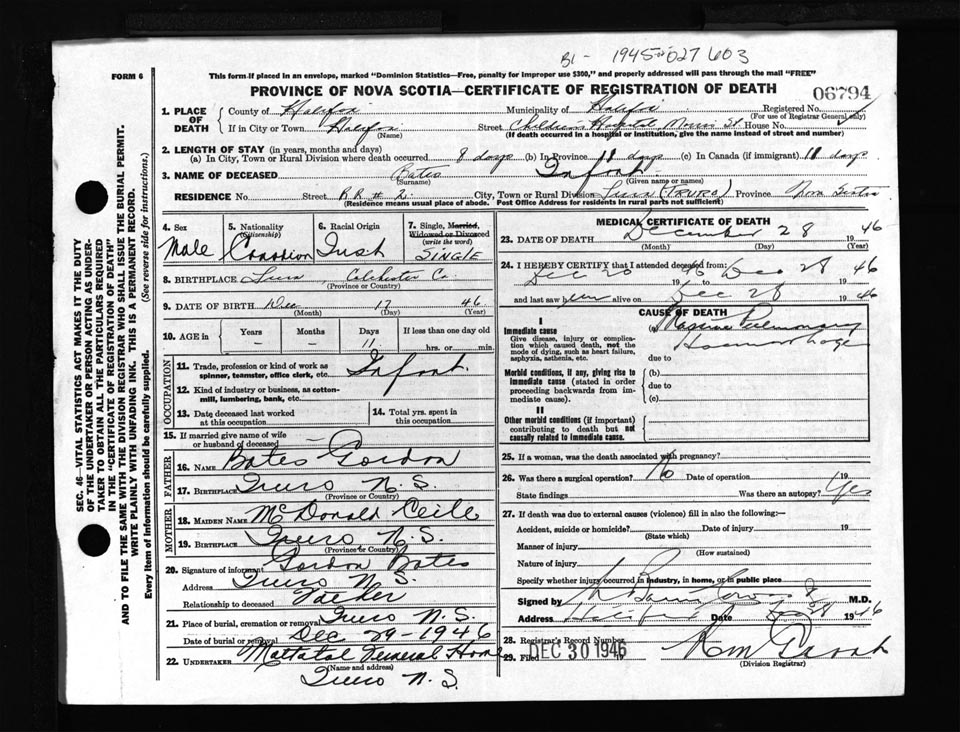 B1 - 1945-027603
FORM 6
This form if placed in an envelope, marked "Dominion Statistics—Free, penalty for improper use $300," and properly addressed will pass through the mail "FREE"
PROVINCE OF NOVA SCOTIA—CERTIFICATE OF REGISTRATION OF DEATH
06794
1. PLACE OF DEATH
County of Halifax
Municipality of Halifax
Registered No.
(For use of Registrar General only)
If in City or Town Halifax
(Name)
Street Children's Hospital, Morris St. House No.
(If death occurred in a hospital or institution, give the name instead of street and number)
2. LENGTH OF STAY (in years, months and days)
(a) In City, Town or Rural Division where death occurred 8 days (b) In Province 11 days (c) In Canada (if immigrant) 11 days
3. NAME OF DECEASED Bates Infant
(Surname) (Given name or names)
RESIDENCE No. Street R R # 2 City, Town or Rural Division (TRURO) Province Nova Scotia
(Residence means usual place of abode. Post Office Address for residents in rural parts not sufficient)
4. Sex
Male
5. Nationality
(Citizenship)
Canadian
6. Racial Origin
Irish
7. Single, Married, Widowed or Divorced
(write the word)
SINGLE
8. BIRTHPLACE Truro, Colchester Co.
(Province or Country)
9. DATE OF BIRTH Dec 17 46
(Month) (Day) (Year)
10. AGE in
Years Months Days If less than one day old
– – 11 hrs. or min.
OCCUPATION
11. Trade, profession or kind of work as spinner, teamster, office clerk, etc. Infant.
12. Kind of industry or business, as cotton-mill, lumbering, bank, etc.
13. Date deceased last worked at this occupation
14. Total yrs. spent in this occupation
15. If married give name of wife or husband of deceased –
FATHER
16. NAME Bates Gordon
17. Birthplace Truro N.S.
(Province or Country)
MOTHER
18. MAIDEN NAME McDonald
19. BIRTHPLACE Truro N.S.
(Province or Country)
20. Signature of informant Gordon Bates
Address Truro N.S.
Relationship to deceased Father
21. Place of burial, cremation or removal Truro N.S.
Date of burial or removal Dec 29-1946
22. UNDERTAKER Mattatal Funeral Home
(Name and address)
Truro N.S.
MEDICAL CERTIFICATE OF DEATH
23. DATE OF DEATH December 28 1946
(Month) (Day) (Year)
24. I HEREBY CERTIFY that I attended deceased from:
Dec 20 1946 to Dec 28 1946
and last saw him alive on Dec 28 1946
CAUSE OF DEATH
I
Immediate cause
Give disease, injury or complication which caused death, not the mode of dying, such as heart failure, asphyxia, asthenia, etc.
(a) Massive Pulmonary
Haemorrhage
due to
Morbid conditions, if any, giving rise to immediate cause (stated in order proceeding backwards from immediate cause).
(b)
due to
(c)
II
Other morbid conditions (if important) contributing to death but not causally related to immediate cause.
25. If a woman, was the death associated with pregnancy?
26. Was there a surgical operation? No Date of operation 19
State findings Was there an autopsy? Yes
27. If death was due to external causes (violence) fill in also the following:—
Accident, suicide or homicide? Date of injury 19
(State which)
Manner of injury
(How sustained)
Nature of injury
Specify whether injury occurred in industry, in home, or in public place
Signed by M.D.
Address Halifax Date Dec 28 1946
28. Registrar's Record Number
29. Filed DEC 30 1946
(Division Registrar)
SEC. 46—VITAL STATISTICS ACT MAKES IT THE DUTY
OF THE UNDERTAKER OR PERSON ACTING AS UNDER-
TAKER TO OBTAIN ALL THE PARTICULARS REQUIRED
IN THE "CERTIFICATE OF REGISTRATION OF DEATH"
AND TO FILE THE SAME WITH THE DIVISION REGISTRAR WHO SHALL ISSUE THE BURIAL PERMIT.
WRITE PLAINLY WITH UNFADING INK. THIS IS A PERMANENT RECORD.
Every item of information should be carefully supplied. (See reverse side for instructions.)